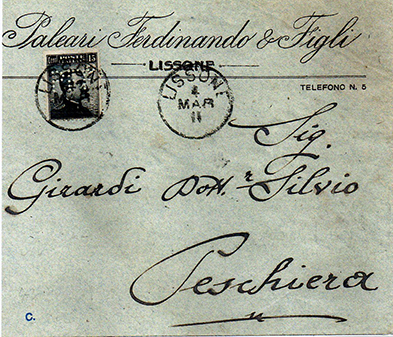 Paleari Ferdinando & Figli
LISSONE
TELEFONO N. 5
15
LISSONE
LISSONE
4
MAR
11
Sig.
Girardi Dott.r Silvio
Peschiera
C.